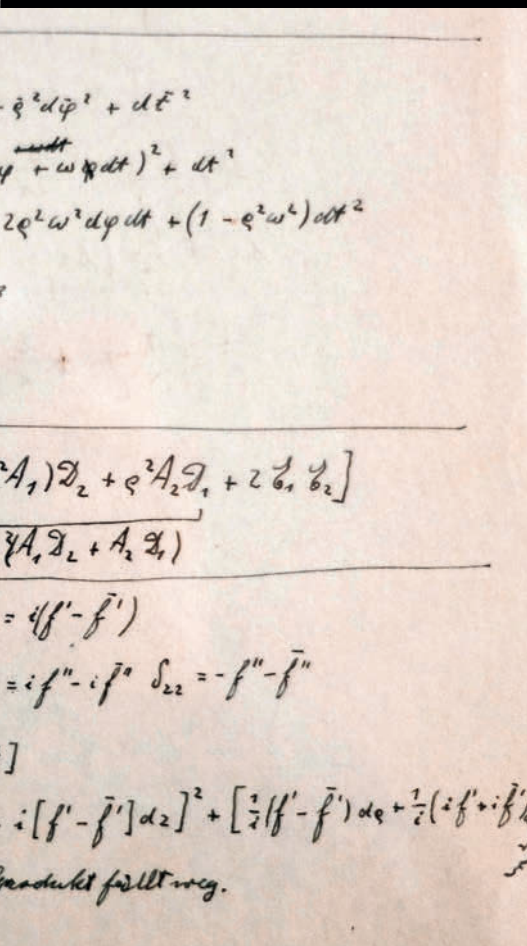 ϱ̄²dφ̄² + dt̄²
+ ωdt)² + dt²
2ϱ²ω²dφdt + (1 - ϱ²ω²)dt²
²A₁)𝔇₂ + ϱ²A₂𝔇₁ + 2𝔅₁𝔅₂]
(A₁𝔇₂ + A₂𝔇₁)
= i(f' - f̄')
= if'' - if̄'' δ₂₂ = -f'' - f̄''
]
i[f' - f̄']dz]² + [1/i(f' - f̄')dϱ + 1/i(if' + if̄'
fällt weg.